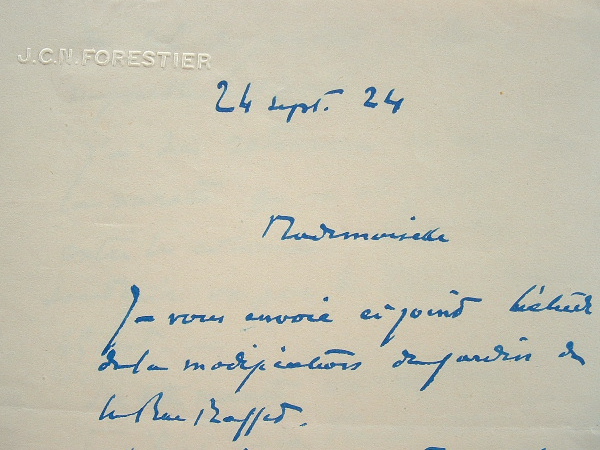 J.C.N. FORESTIER
24 sept. 24
Mademoiselle
Je vous envoie ci joint l'étude
de la modification du jardin de
la Rue Raffet.